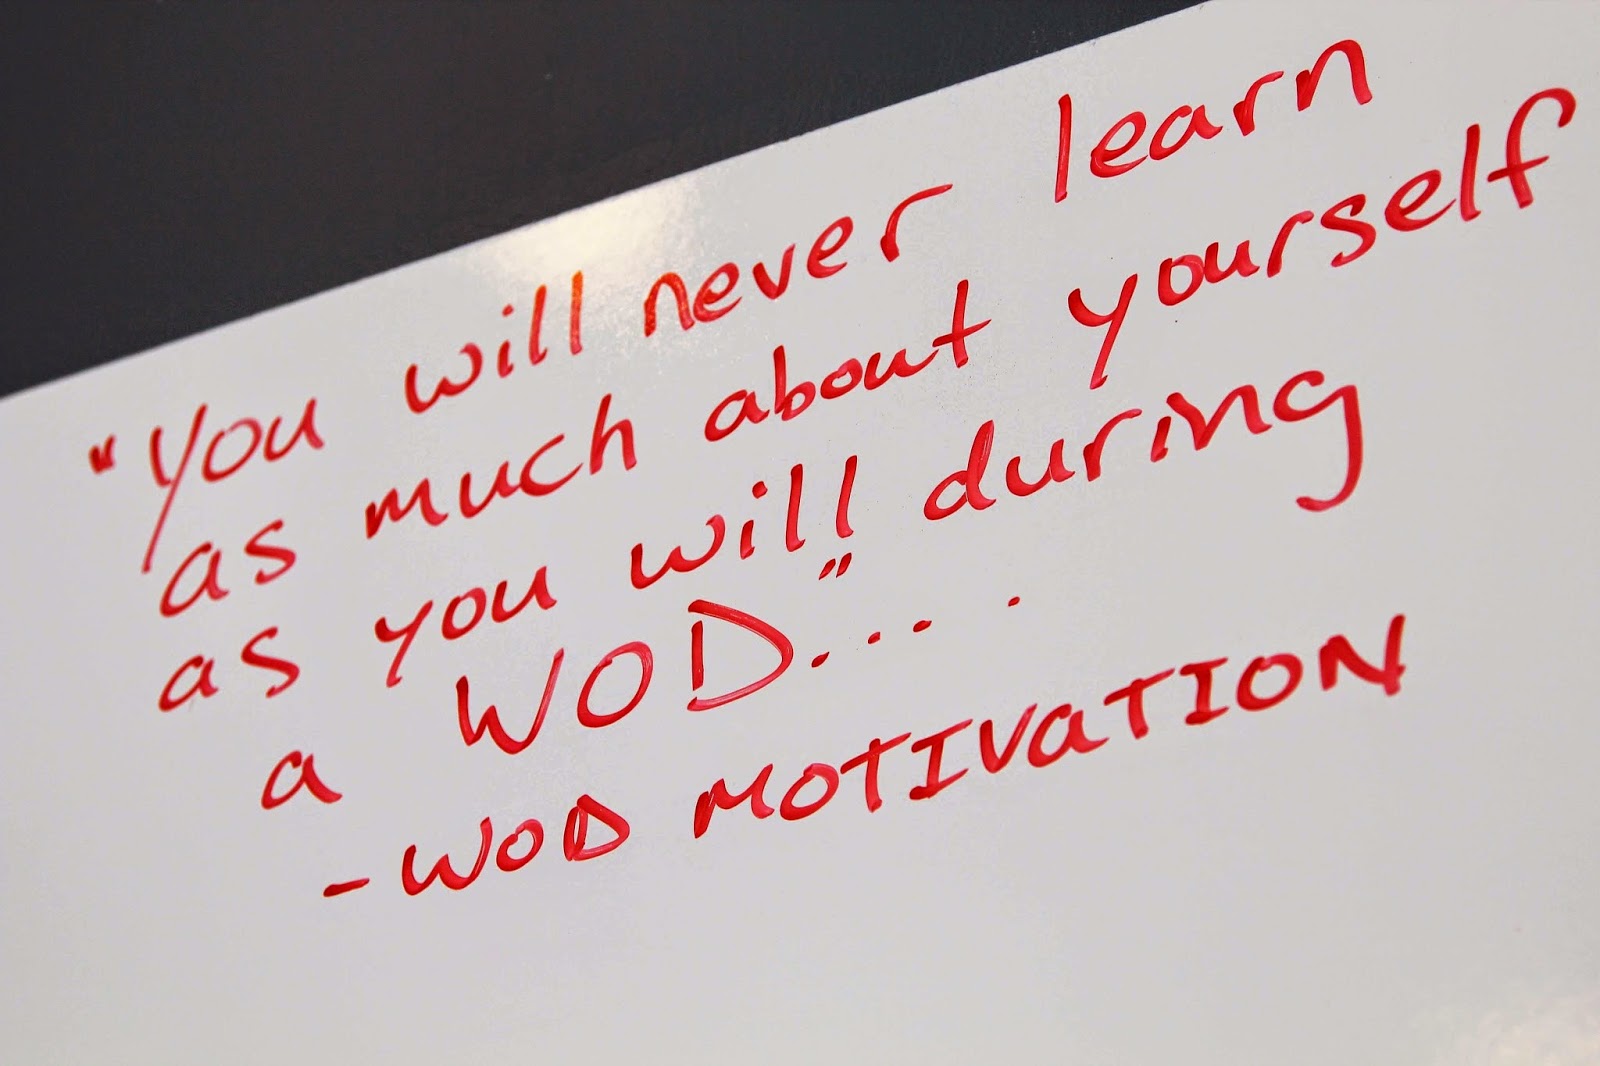 "You will never learn
as much about yourself
as you will during
a WOD"....
-WOD MOTIVATION